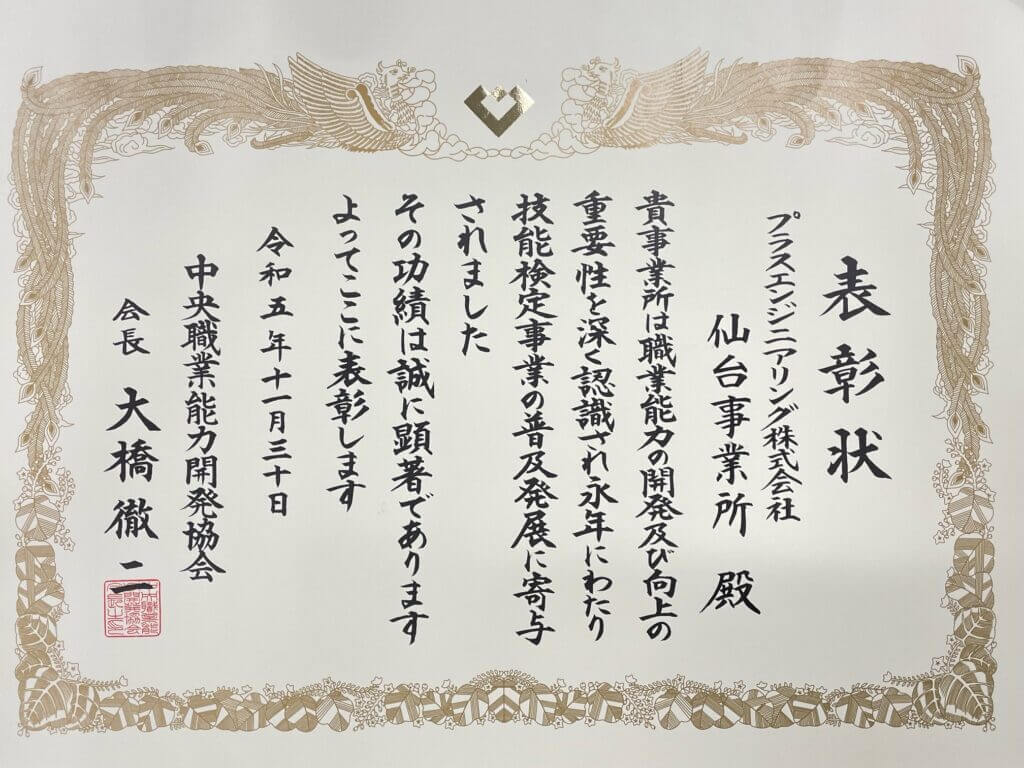 表彰状
プラスエンジニアリング株式会社
仙台事業所 殿
貴事業所は職業能力の開発及び向上の
重要性を深く認識され永年にわたり
技能検定事業の普及発展に寄与
されました
その功績は誠に顕著であります
よってここに表彰します
令和五年十一月三十日
中央職業能力開発協会
会長 大橋徹二